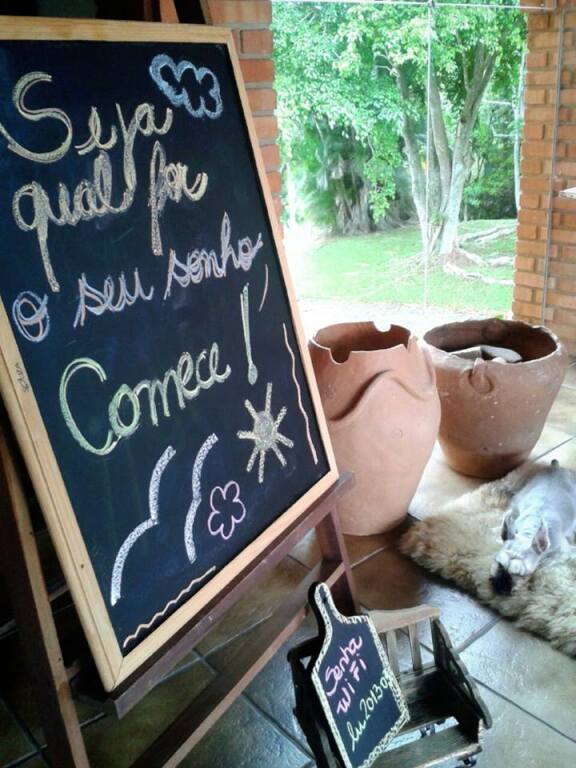 Seja
qual for
o seu sonho,
Comece!
Senha
WiFi